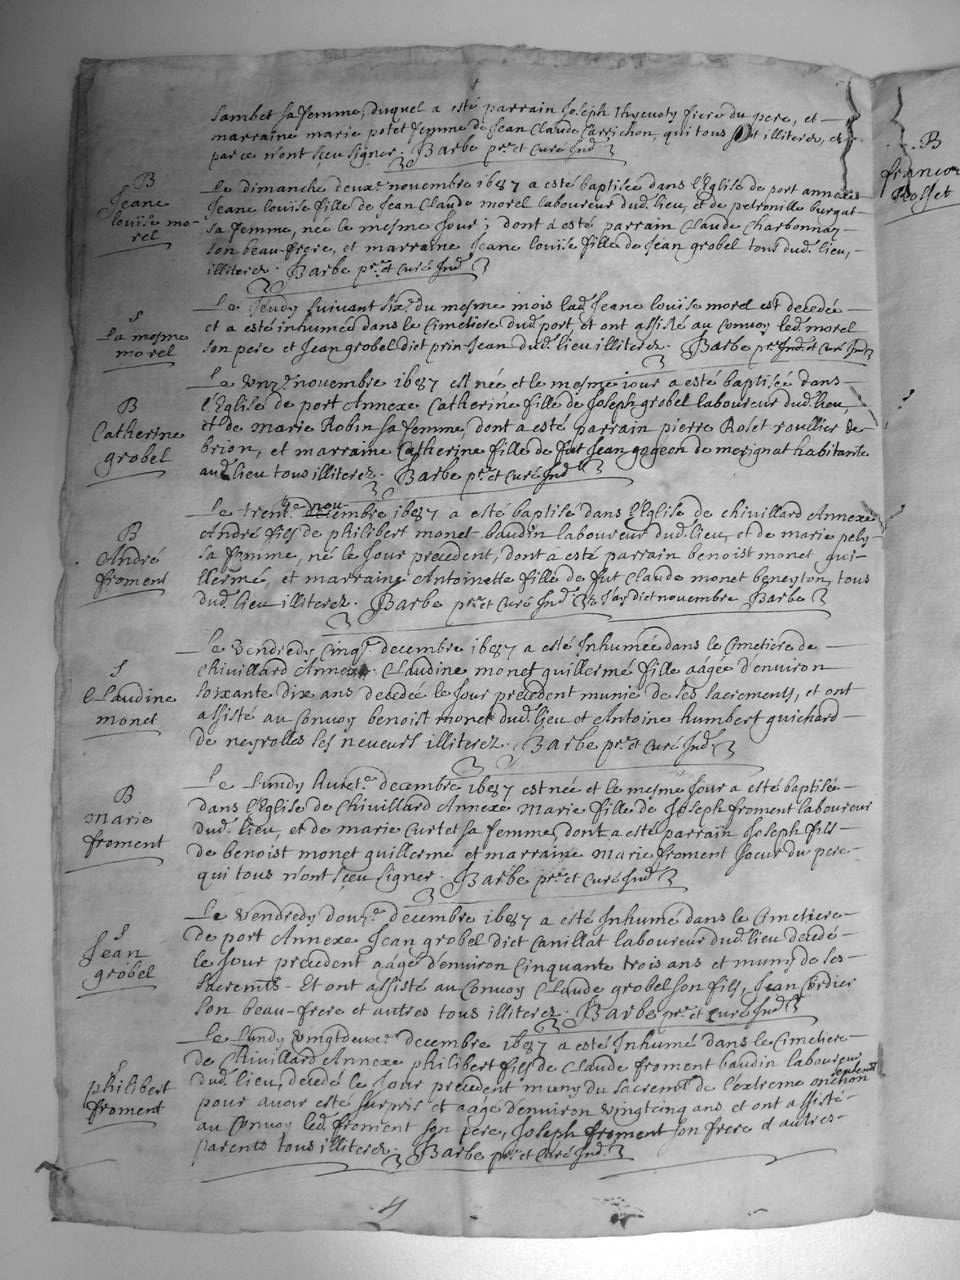 Sambet sa femme, duquel a esté parrain Joseph Thevenet frere du pere, et
marraine marie potet femme de Jean Claude Carrichon, qui tous illiterez, et
par ce n'ont sceu signer. Barbe pr. et Curé Ind.
B
Jeane
louise mo-
rel
Le dimanche deuxe. novembre 1687 a esté baptisée dans l'Eglise de port annexe
Jeane louise fille de Jean Claude morel laboureur dud. lieu, et de petronille burgat
sa femme, née le mesme jour; dont a esté parrain Claude Charbonnay
son beau-frere, et marraine Jeane louise fille de Jean grobel tous dud. lieu,
illiterez. Barbe pr. et Curé Ind.
S
La mesme
morel
Le Jeudy suivant six.e du mesme mois lad. Jeane louise morel est decedée
et a esté inhumée dans le Cimetiere dud. port, et ont assisté au Convoy led. morel
son pere et Jean grobel dict prin-Jean dud. lieu illiterez. Barbe pr. Ind. et Curé Ind.
B
Catherine
grobel
Le unz.e novembre 1687 est née et le mesme jour a esté baptisée dans
l'Eglise de port Annexe Catherine fille de Joseph grobel laboureur dud. lieu,
et de Marie Robin sa femme, dont a esté parrain pierre Rolet roullier de
brion, et marraine Catherine fille de fut Jean gogeon de merignat habitante
aud. lieu tous illiterez. Barbe pr. et Curé Ind.
B
André
froment
Le trent.e novembre 1687 a esté baptisé dans l'Eglise de Chivillard Annexe
André fils de philibert monet-baudin laboureur dud. lieu, et de marie pely
sa femme, né le Jour precedent, dont a esté parrain benoist monet gui-
llermé, et marraine Antoinette fille de fut Claude monet beneyton, tous
dud. lieu illiterez. Barbe pr. et Curé Ind. J'ay dict novembre Barbe
S
Claudine
monet
Le vendredy Cinq.e decembre 1687 a esté Inhumée dans le Cimetiere de
Chivillard Annexe Claudine monet guillermé fille aâgée d'environ
soixante dix ans decedée le Jour precedent munie de ses sacrements, et ont
assisté au Convoy benoist monet dud. lieu et Antoine humbert guichard
de neyrolles ses neveurs illiterez. Barbe pr. et Curé Ind.
B
Marie
froment
Le Lundy huict.e decembre 1687 est née et le mesme Jour a esté baptisée
dans l'Eglise de Chivillard Annexe Marie fille de Joseph froment laboureur
dud. lieu, et de marie Curtet sa femme, dont a esté parrain Joseph fils
de benoist monet guillermé et marraine Marie froment soeur du pere
qui tous n'ont sceu signer. Barbe pr. et Curé Ind.
S
Jean
grobel
Le vendredy douz.e decembre 1687 a esté Inhumé dans le Cimetiere
de port Annexe Jean grobel dict Canillat laboureur dud. lieu decedé
le Jour precedent aâgé d'environ Cinquante trois ans et muny de ses
sacremts. Et ont assisté au Convoy Claude grobel son fils, Jean Cordier
son beau-frere et autres tous illiterez. Barbe pr. et Curé Ind.
S
philibert
froment
Le Lundy vingtdeux.e decembre 1687 a esté Inhumé dans le Cimetiere
de Chivillard Annexe philibert fils de Claude froment baudin laboureur
dud. lieu, decedé le Jour precedent muny du sacremt. de l'extreme onction seulemt.
pour avoir esté surpris et aâgé d'environ vingtcinq ans et ont assisté
au Convoy led. froment son pere, Joseph froment son frere et autres
parents tous illiterez. Barbe pr. et Curé Ind.
B
francoi
Rosset